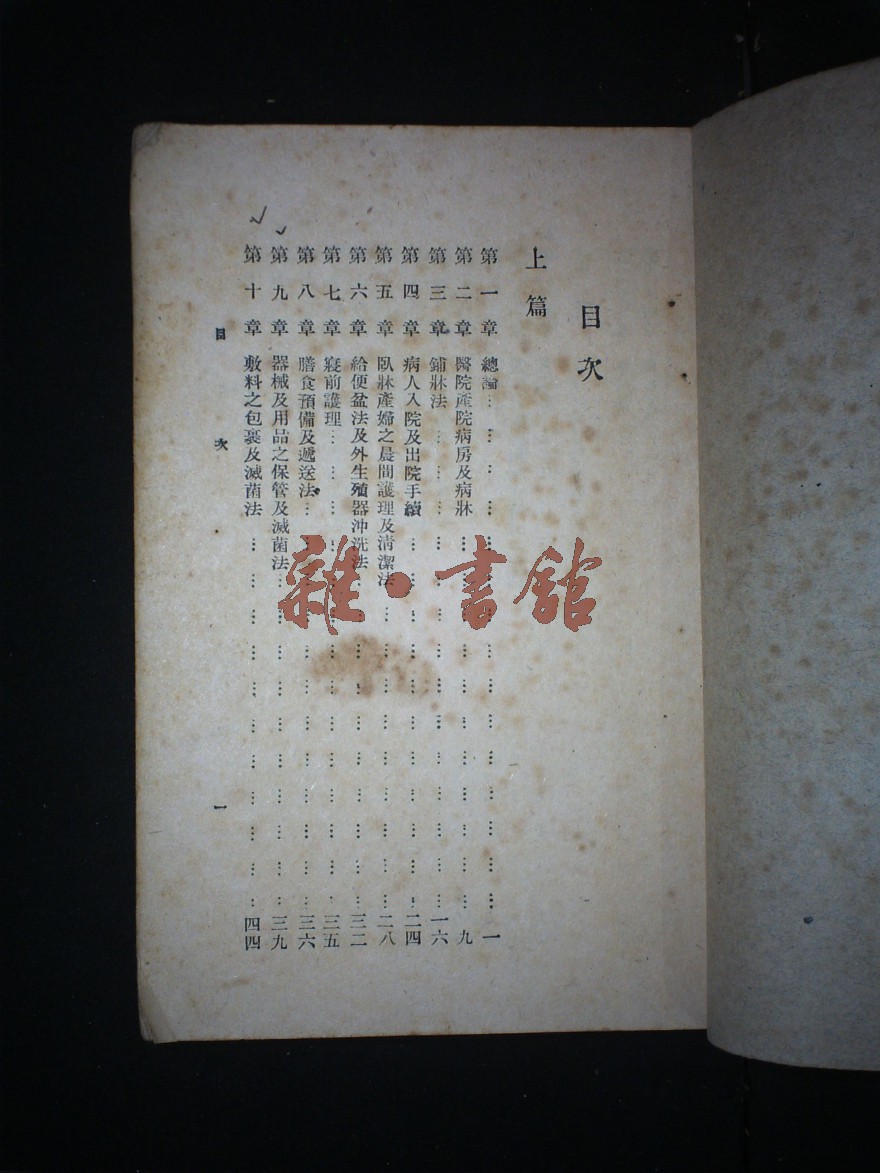 目次
上篇
第一章 總論………………………………一
第二章 醫院產院病房及病牀………………………………九
第三章 鋪牀法………………………………一六
第四章 病人入院及出院手續………………………………二四
第五章 臥牀產婦之晨間護理及淸潔法………………………………二八
第六章 給便盆法及外生殖器沖洗法………………………………三二
第七章 寢前護理………………………………三五
第八章 膳食預備及遞送法………………………………三六
第九章 器械及用品之保管及滅菌法………………………………三九
第十章 敷料之包裹及滅菌法………………………………四四
目次 一
雜·書館